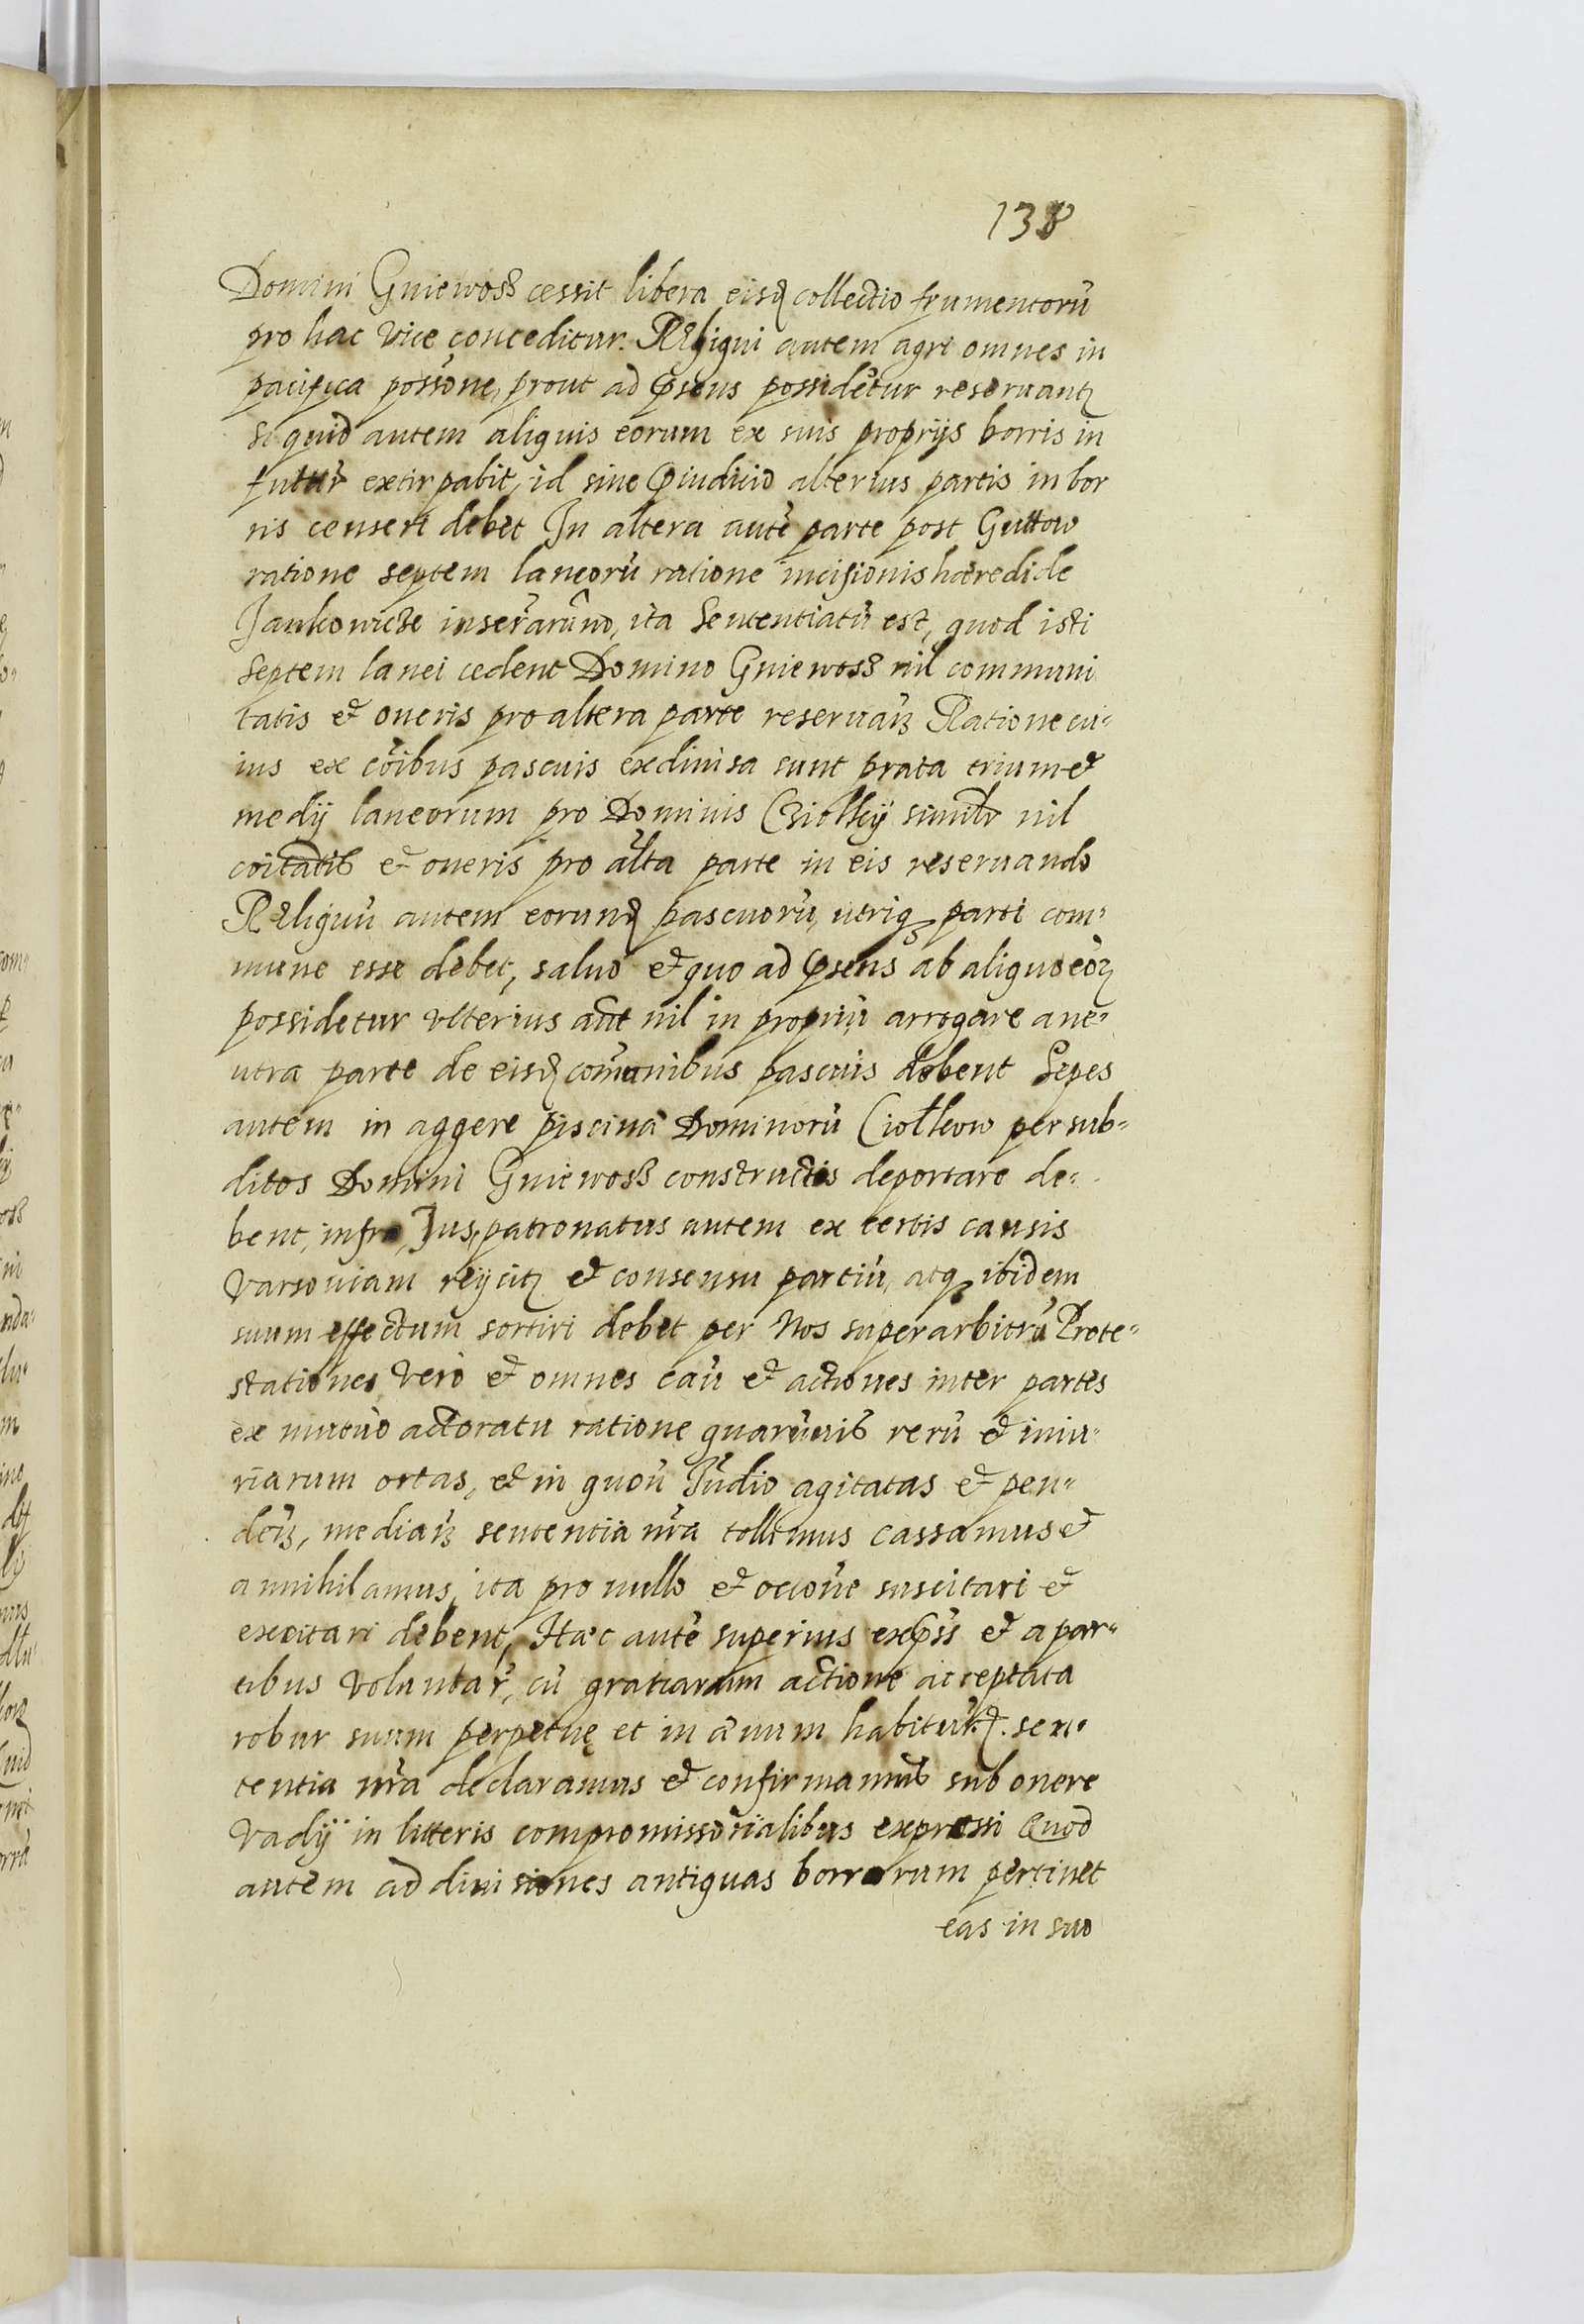 138
Domini Gniewosz cessit libera eisđ collectio frumentorū
pro hac vice conceditur. Religui autem agri omnes in
pacifica possōne, prout ad p̃sens possidētur reseruantꝫ
Si quid autem aliquis eorum ex suis proprijs borris in
futūr extirpabit, id sine p̃iudicio alterius partis in bor
ris censeri debet In altera autē parte post Guttow
ratione septem laneorū ratione incisionis hæredi de
Jankowicze inserarūno, ita Sententiatū est, quod isti
Septem lanei cedent Domino Gniewosz nil communi
tatis et oneris pro altera parte reseruañ Ratione cu-
ius ex cōibus pascuis exdiuisa sunt prata trium et
medij laneorum pro Dominis Cziołkij similr nil
cōitatis et oneris pro alťa parte in eis reseruando
Reliquū autem eorunđ pascuorū, utriqꝫ parti com-
mune esse debet, saluo et quo ad p̃sens ab aliquo eoꝝ
possidetur ulterius aūt nil in propriū arrogare a ne-
utra parte de eisđ com̄unibus pascuis debent Sepes
autem in aggere piscinā Dominorū Ciołkow per sub-
ditos Domini Gniewosz constructis deportare de-
bent, infra, Jus, patronatus autem ex certis causis
Varsouiam reijcitꝫ et consensu partiū, atqꝫ ibidem
suum effectum sortiri debet per Nos superarbitrū Prote-
stationes vero et omnes caū et actiones inter partes
ex mutuo actoratu ratione quarūuis rerū et iniu-
riarum ortas, et in quoū Judio agitatas et pen-
deñ, mediañ sententia nr̄a tollimus cassamus et
annihilamus, ita pro nullo et occōne suscitari et
excitari debent, Hæc autē superius exp̃ss et a par-
tibus voluntar̄, cū gratiarum actione acceptata
robur suum perpetuę et in æuum habitur̄đ. sen-
tentia nr̄a declaramus et confirmamus sub onere
Vadij in litteris compromissorialibus expressi Quod
autem ad diuisiones antiquas borrarum pertinet
eas in suo